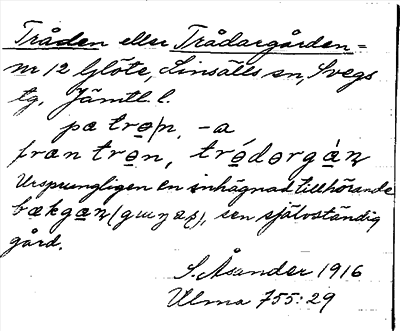 Tråden eller Trådargården =
nr 12 Glöte, Linsälls sn, Svegs
tg, Jämtl. l.
på tro̲/n, -a
fran tro̲n, tró̲dorga̲ɳ
Ursprungligen en inhägnad tillhörande
bækga̲ɳ, sen självständig
gård.
S. Åsander 1916
Ulma 755:29